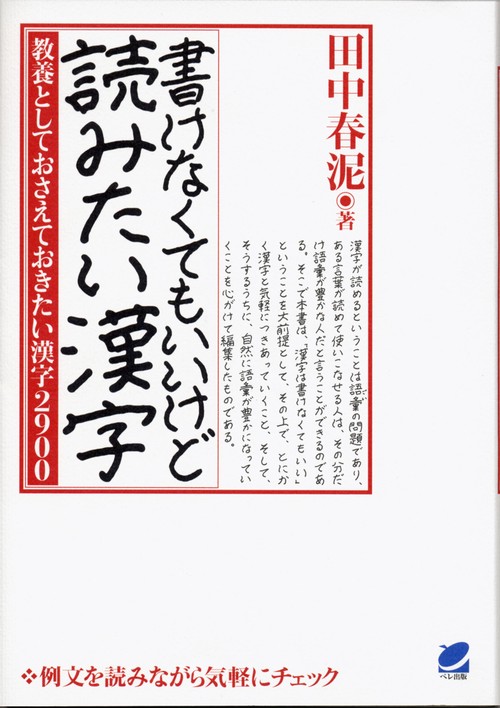 田中春泥◉著
漢字が読めるということは語彙の問題であり、
ある言葉が読めて使いこなせる人は、その分だ
け語彙が豊かな人だと言うことができるのであ
る。そこで本書は、「漢字は書けなくてもいい」
ということを大前提として、その上で、とにか
く漢字と気軽につきあっていくこと、そして、
そうするうちに、自然に語彙が豊かになってい
くことを心がけて編集したものである。
書けなくてもいいけど
読みたい漢字
教養としておさえておきたい漢字2900
❖例文を読みながら気軽にチェック
ベレ出版